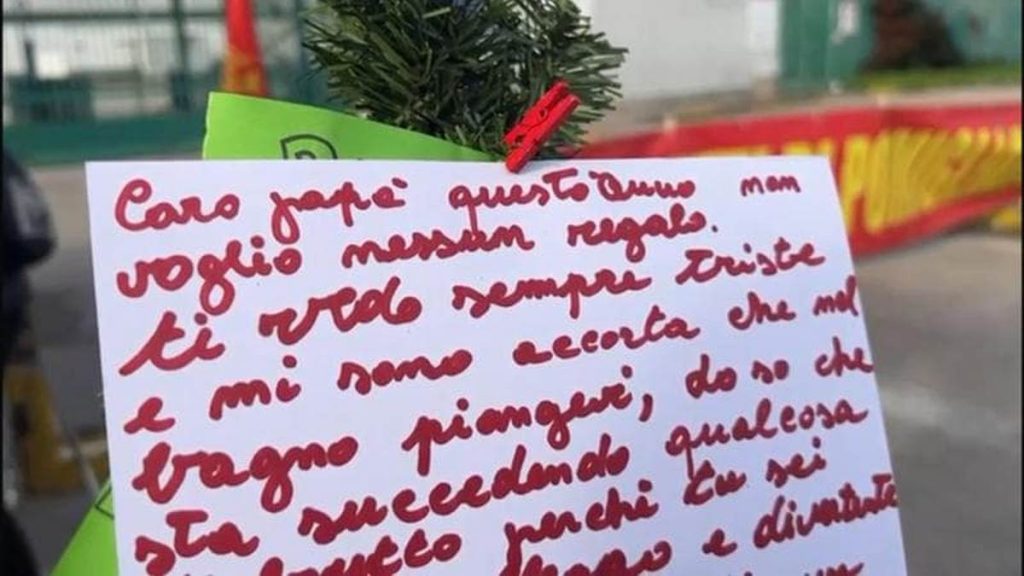 Caro papà quest'anno non
voglio nessun regalo.
ti vedo sempre triste
e mi sono accorta che nel
bagno piangevi, lo so che
sta succedendo qualcosa
brutto perché tu sei
e divertente
un